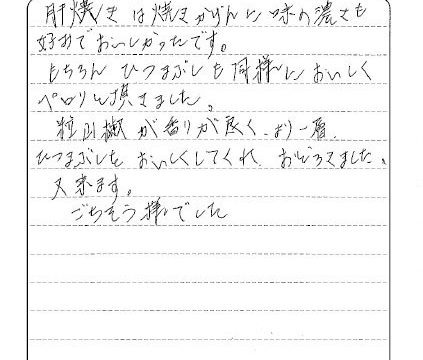 肝焼きは焼きかげんに味の濃さも
好みでおいしかったです。
もちろん ひつまぶしも同様においしく
ペロリと頂きました。
粒山椒が香りが良く、より一層
ひつまぶしを おいしくしてくれ おどろきました。
又来ます。
ごちそう様でした